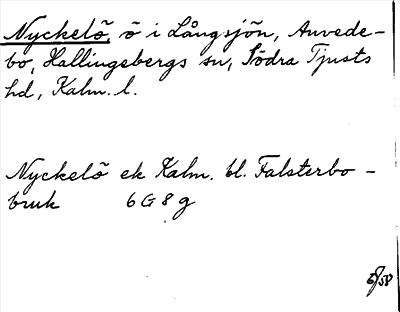 Nyckelö, ö i Långsjön, Anvede-
bo, Hallingebergs sn, Södra Tjusts
hd, Kalm. l.
Nyckelö ek Kalm. bl. Falsterbo-
bruk 6 G 8 g